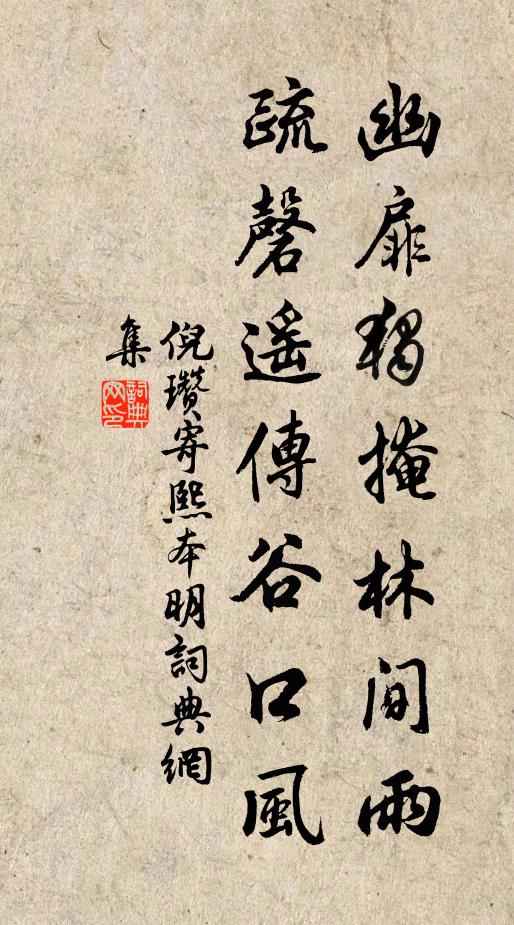 幽扉獨掩林間雨
疏磬遙傳谷口風
倪瓚寄熙本明詞典網
集
詞典
网印